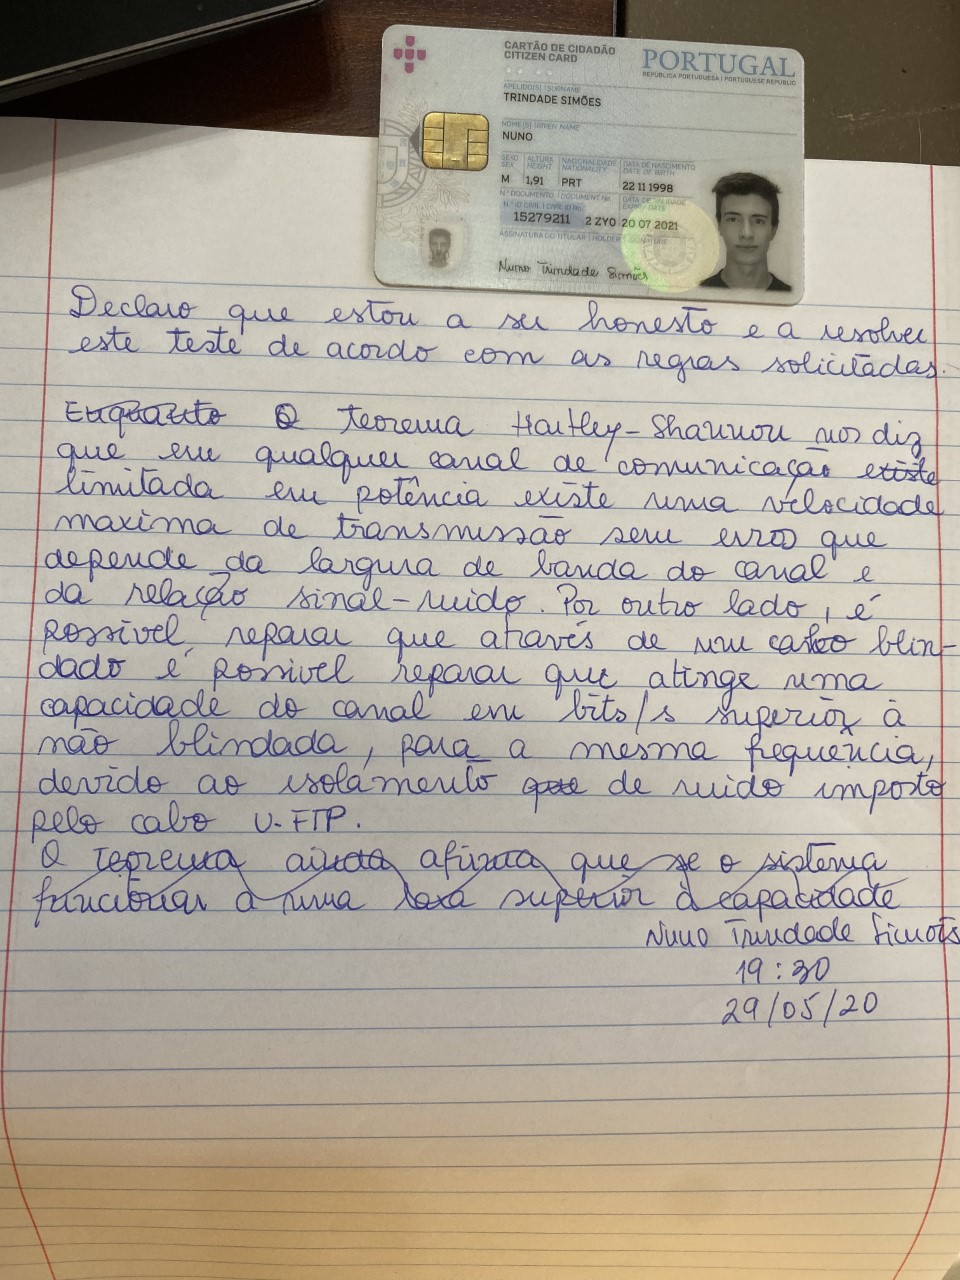 CARTÃO DE CIDADÃO
CITIZEN CARD
PORTUGAL
REPÚBLICA PORTUGUESA | PORTUGUESE REPUBLIC
APELIDO[S] | SURNAME
TRINDADE SIMÕES
NOME[S] | GIVEN NAME
NUNO
SEXO ALTURA NACIONALIDADE DATA DE NASCIMENTO
SEX HEIGHT NATIONALITY DATE OF BIRTH
M 1,91 PRT 22 11 1998
Nº DOCUMENTO | DOCUMENT No. DATA DE VALIDADE
Nº ID CIVIL | CIVIL ID No. EXPIRY DATE
15279211 2 ZY0 20 07 2021
ASSINATURA DO TITULAR | HOLDER'S SIGNATURE
Nuno Trindade Simões
Declaro que estou a ser honesto e a resolver
este teste de acordo com as regras solicitadas.
Enquanto O teorema Hartley-Shannon nos diz
que em qualquer canal de comunicação existe
limitada em potência existe uma velocidade
maxima de transmissão sem erros que
depende da largura de banda do canal e
da relação sinal-ruido. Por outro lado, é
possivel reparar que através de um cabo blin-
dado é possivel reparar que atinge uma
capacidade do canal em bits/s superior à
não blindada, para a mesma frequência,
devido ao isolamento que de ruido imposto
pelo cabo U-FTP.
O teorema ainda afirma que se o sistema
funcionar a uma taxa superior à capacidade
Nuno Trindade Simões
19:30
29/05/20